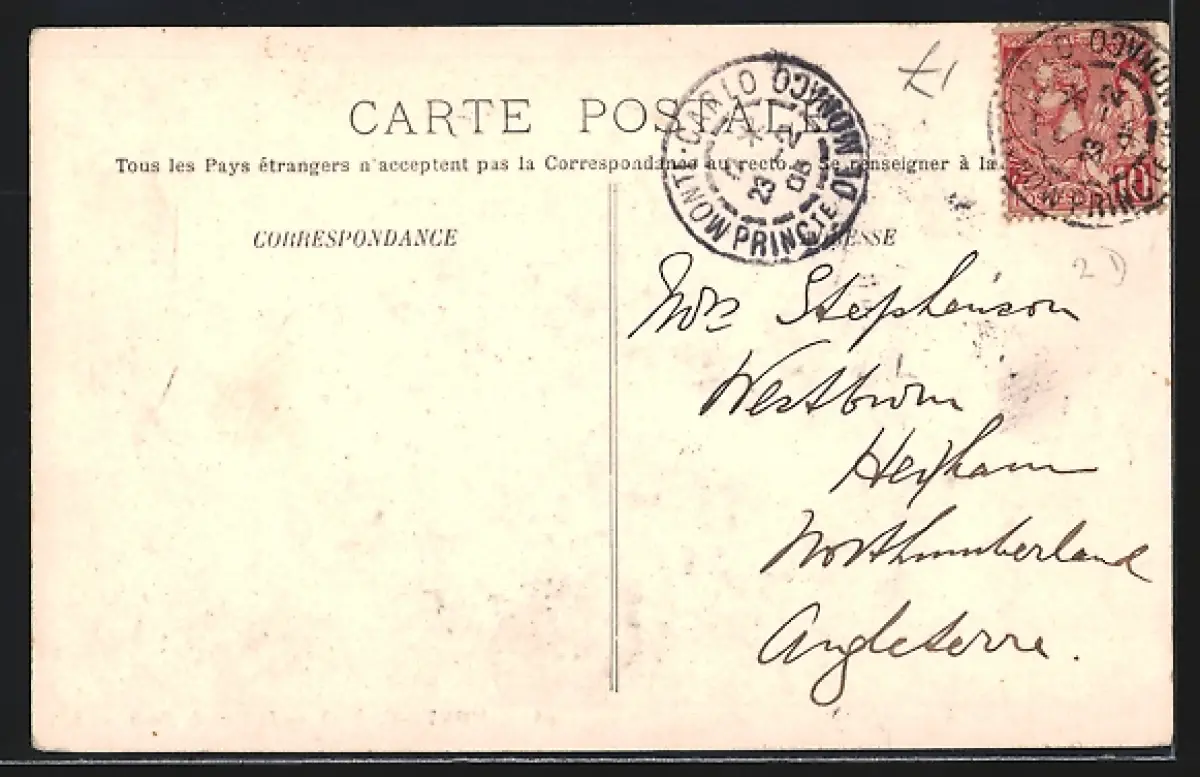 CARTE POSTALE
Tous les Pays étrangers n'acceptent pas la Correspondance au recto. Se renseigner à la
CORRESPONDANCE
ADRESSE
MONTE-CARLO
PRINCTE DE MONACO
23 -2
06
£1
10
2D
Mrs Stephenson
Westbrow
Hexham
Northumberland
Angleterre.